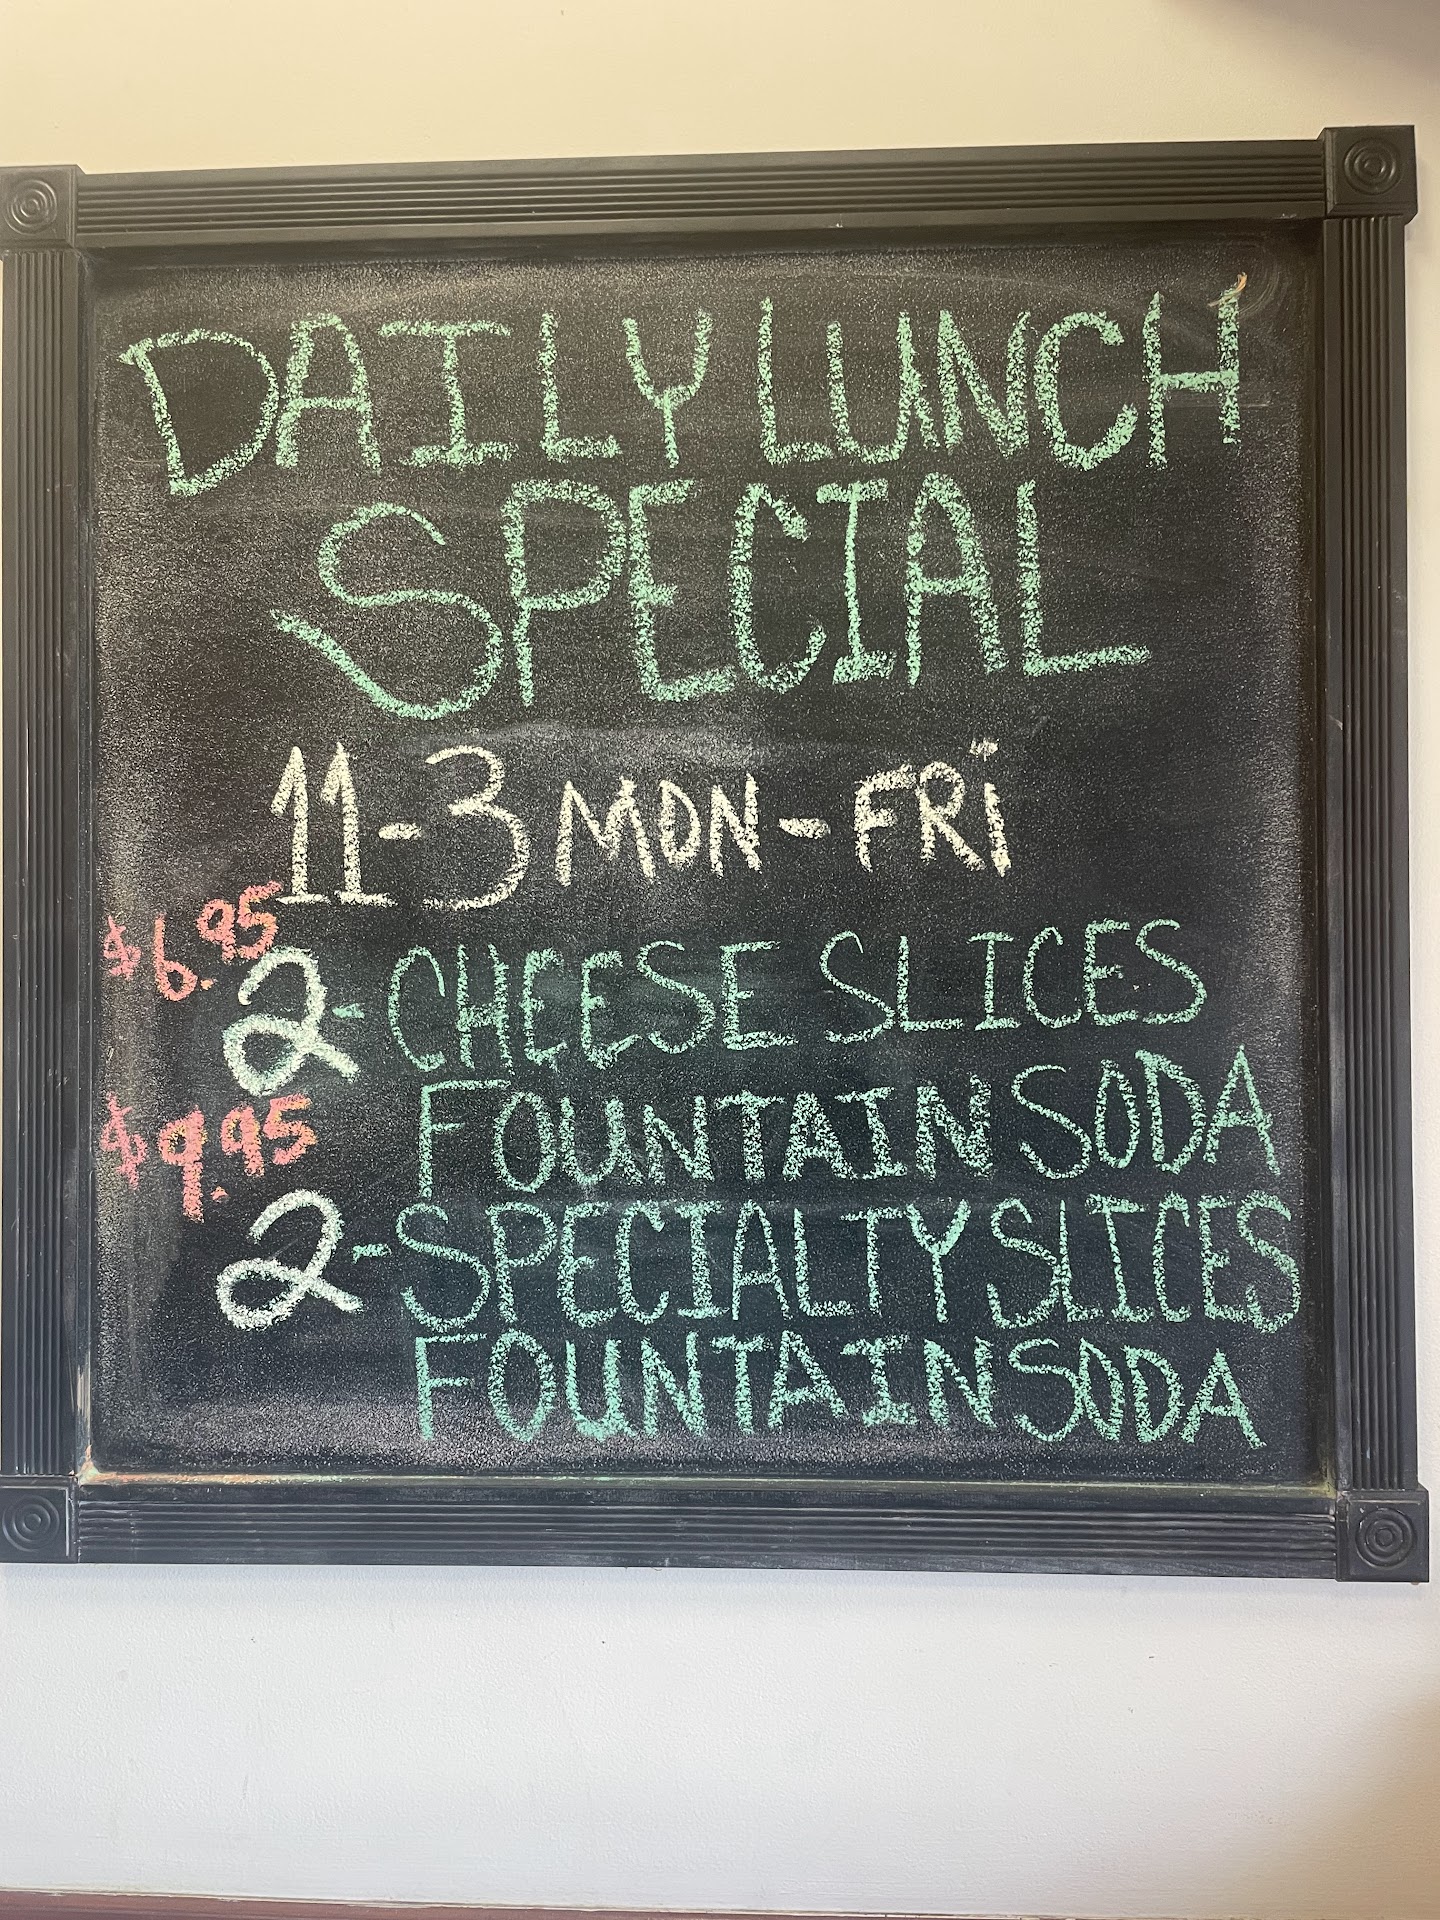 DAILY LUNCH
SPECIAL
11-3 MON-FRi
$6.95
2- CHEESE SLICES
FOUNTAIN SODA
$9.95
2- SPECIALTY SLICES
FOUNTAIN SODA